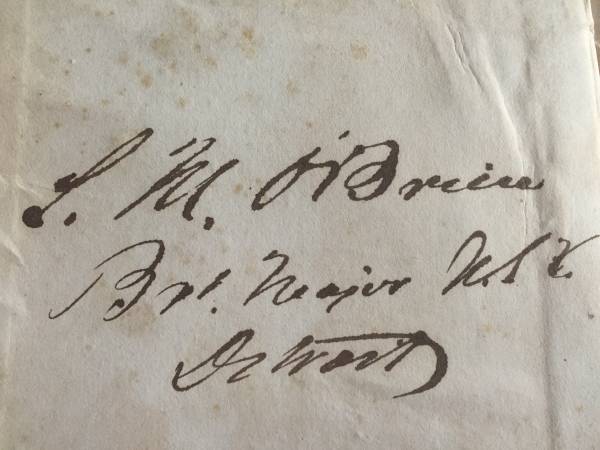 L. M. O'Brien
Brt. Major U.S.A.
Detroit